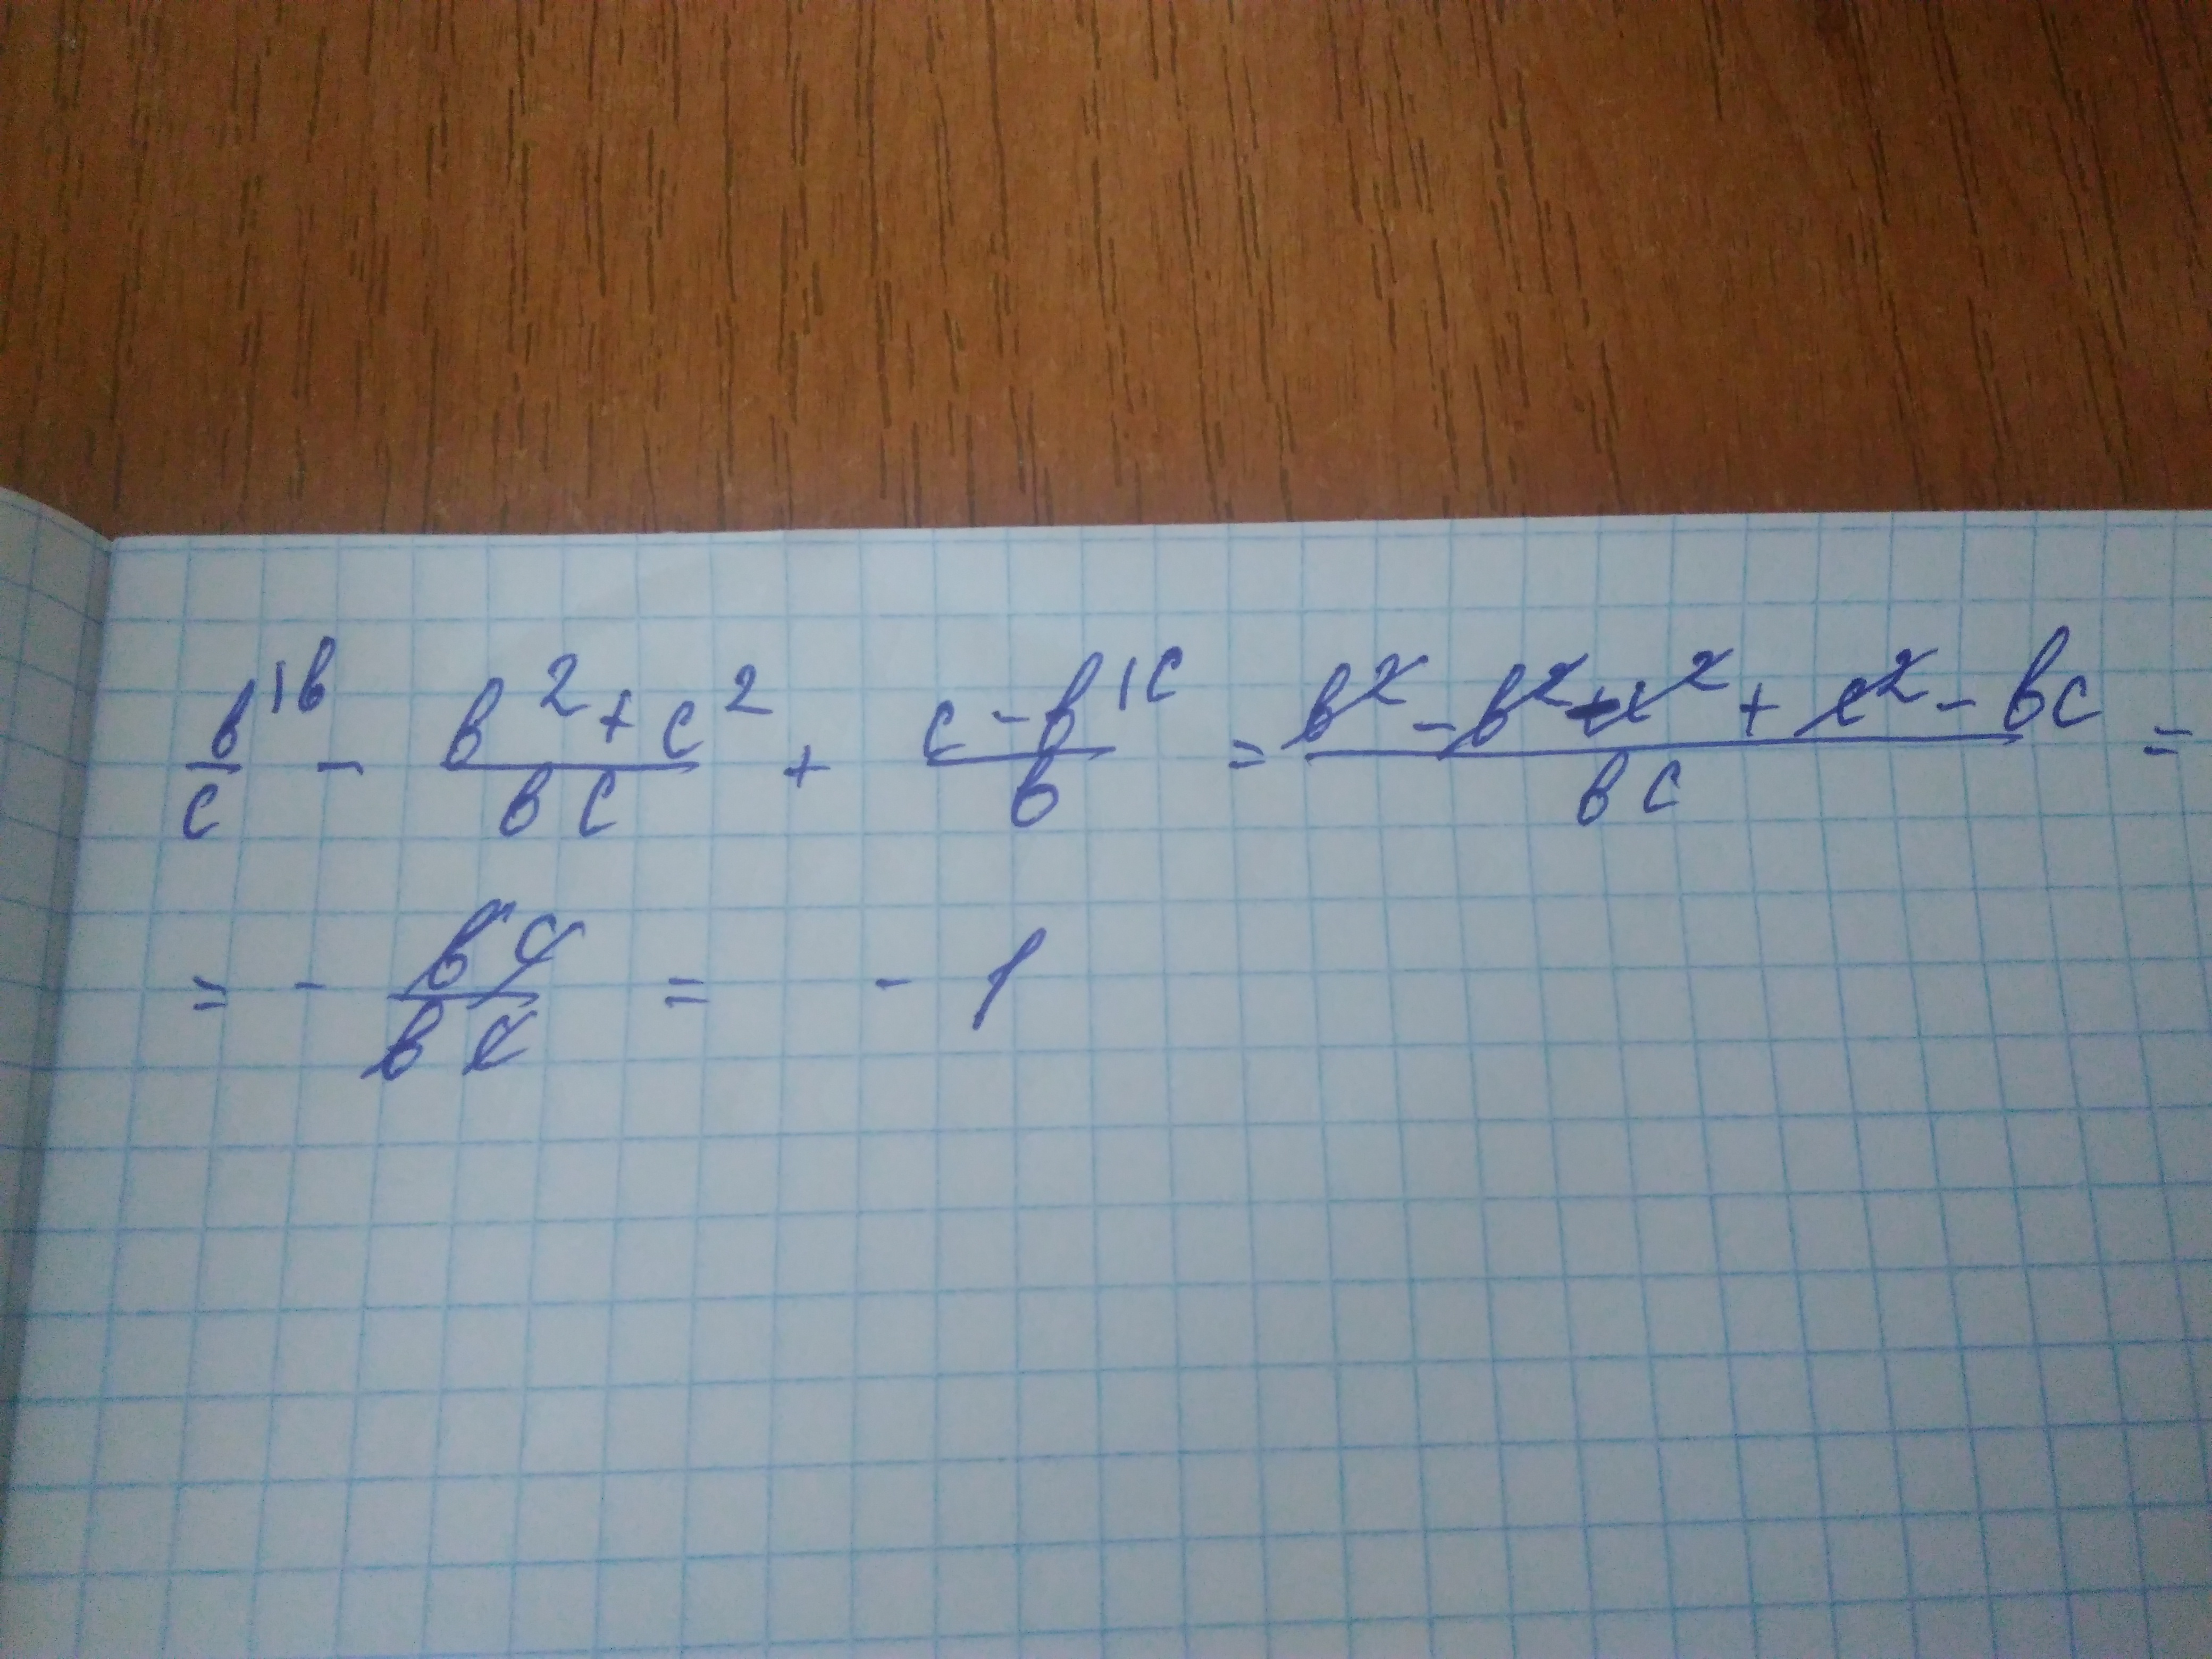 b/c |b - (b² + c²)/(bc) + (c - b)/b |c = (b² - b² - c² + c² - bc)/(bc) =
= - (bc)/(bc) = - 1